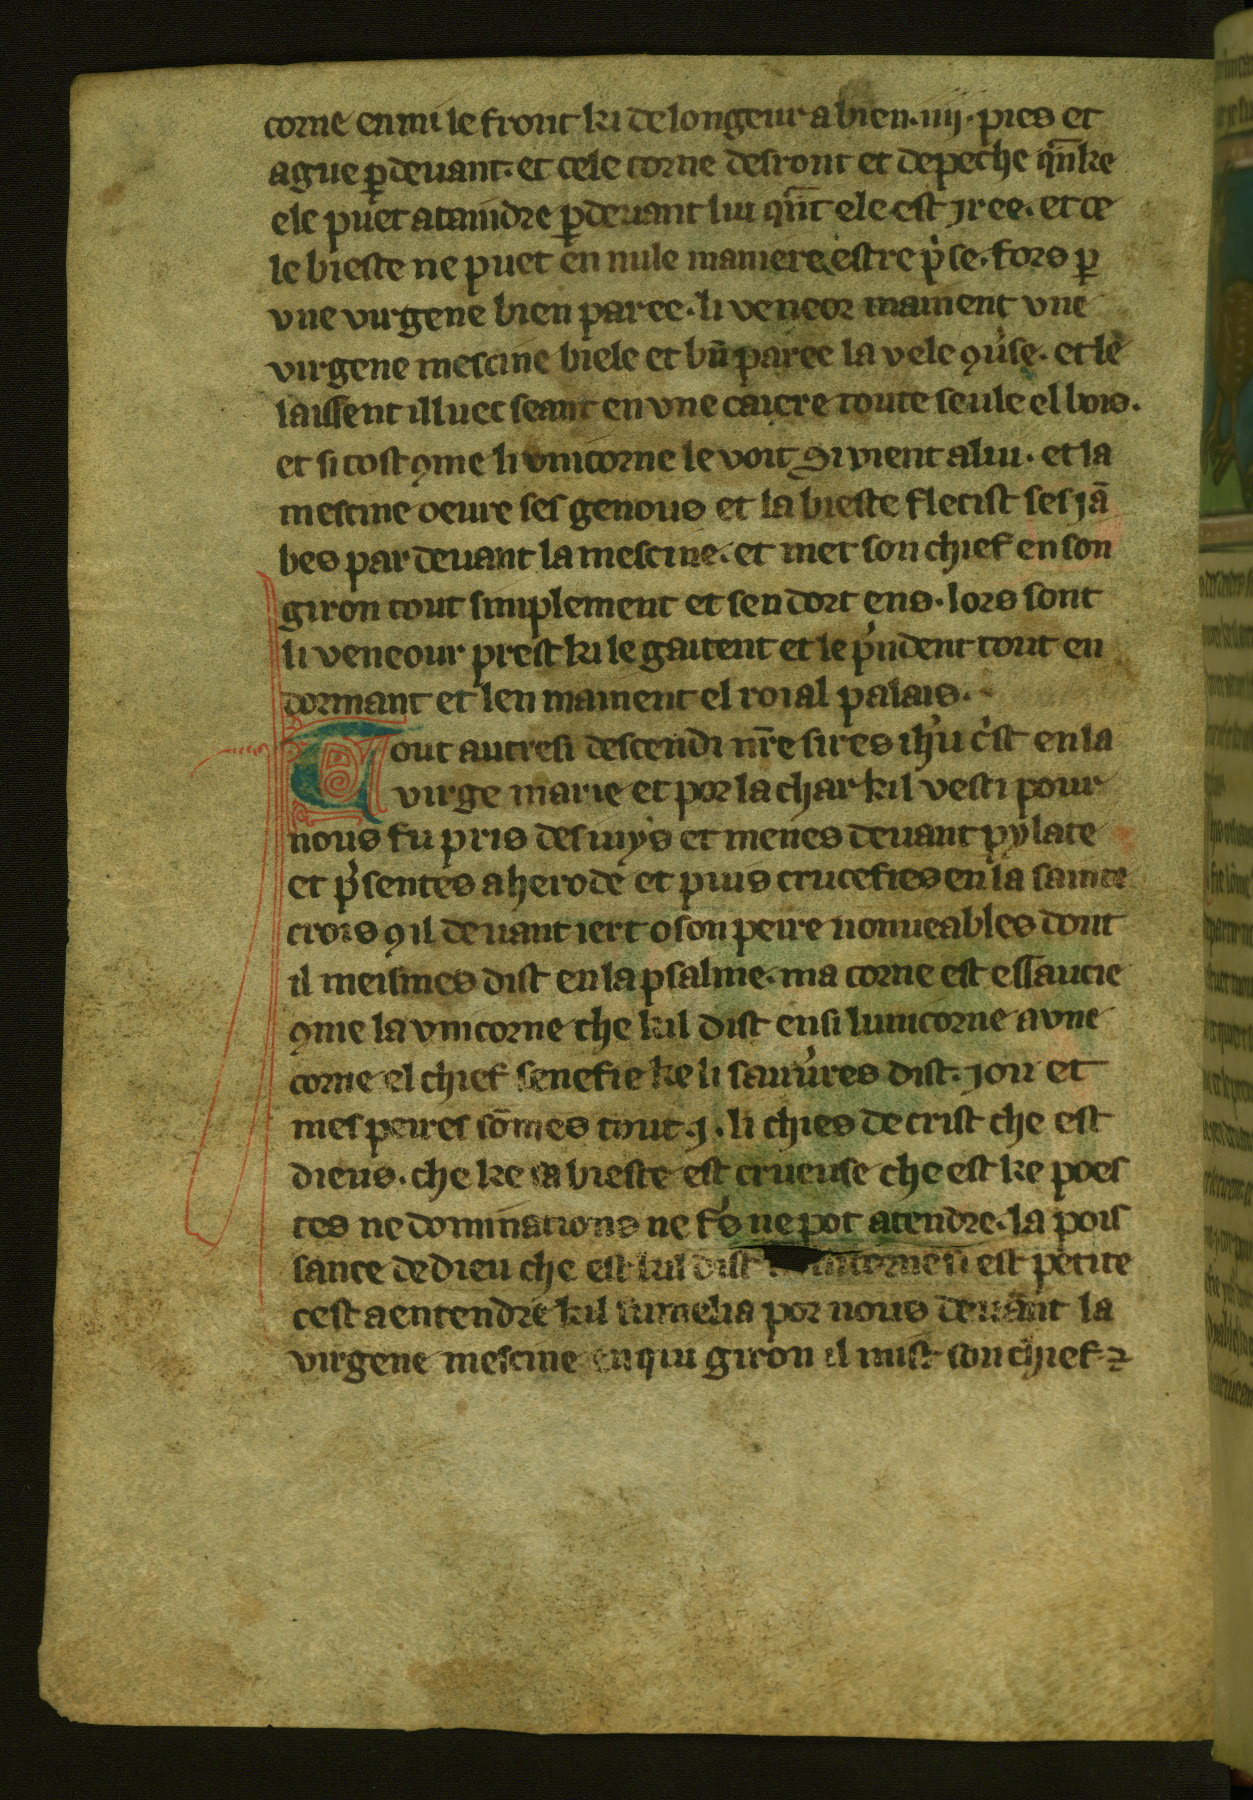 corne en mi le front ki de longeur a bien .iiij. pies et
ague ꝑ deuant. et cele corne desront et depeche qn̄ke
ele puet ataindre ꝑ deuant lui qn̄t ele est jree. et ce
le bieste ne puet en nule maniere estre p̓se. fors ꝑ
vne virgene bien paree. li veneor mainent vne
virgene mescine biele et bn̄ paree la v ele ꝯu̓se. et le
laissent illuec seant en vne caiere toute seule el bois.
et si tost ꝯme li vnicorne le voit si vient a lui. et la
mescine oeure ses genous et la bieste flecist ses jā
bes par deuant la mescine. et met son chief en son
giron tout simplement et sen dort ens. lors sont
li veneour prest ki le gaitent et le p̓ndent tout en
dormant et len mainent el roial palais.
Tout autresi descendi nr̄e sires ih̓u c̓st en la
virge marie et por la char kil vesti pour
nous fu pris des iuys et menes deuant pylate
et p̓sentes a herode et puis crucefies en la sainte
crois ꝯ il deuant iert o son peire nonueables dont
il meismes dist en la psalme. ma corne est essaucie
ꝯme la vnicorne che kil dist ensi lunicorne a vne
corne el chief senefie ke li sauu̓res dist. jou et
mes peires sōmes tout .j. li chies de crist che est
dieus. che ke la bieste est crueuse che est ke poes
tes ne dominations ne f̓s ne pot atendre. la pois
sance de dieu che est kil dist unicorne si est petite
cest a entendre kil sumelia por nous deuant la
virgene mescine en qui giron il mist son chief ⁊